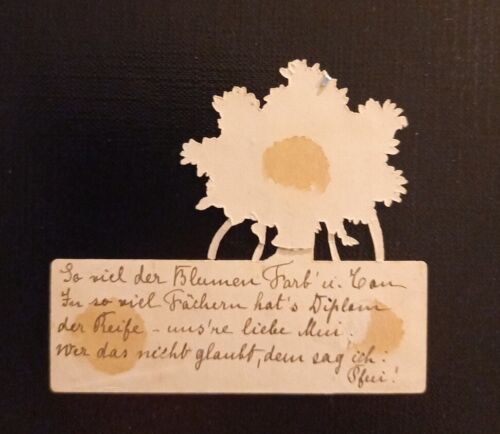 So viel der Blumen Farb' u. Ton
In so viel Fächern hat's Diplom
der Reife – uns're liebe Mui.
Wer das nicht glaubt, dem sag ich:
Pfui!